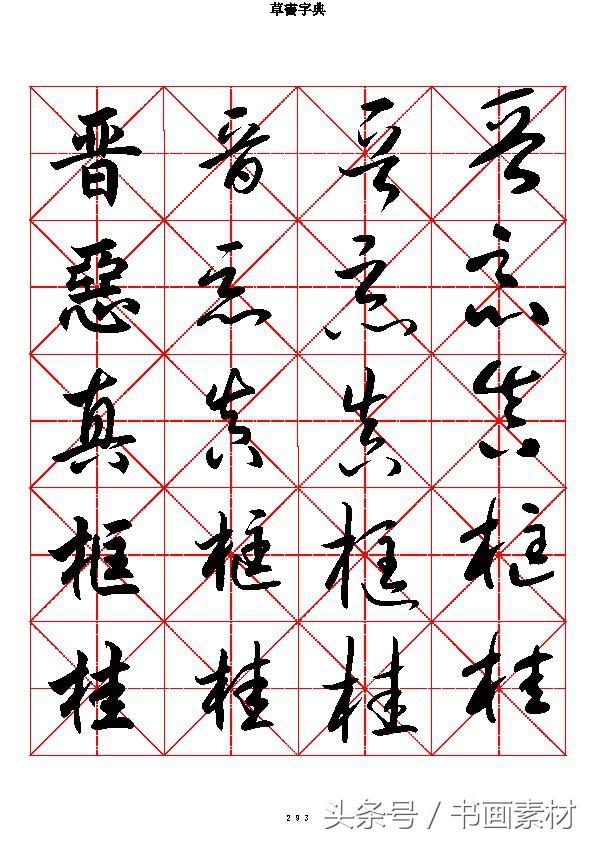 草書字典
晋 晋 晋 晋
惡 惡 惡 惡
真 真 真 真
框 框 框 框
桂 桂 桂 桂
293
头条号 / 书画素材